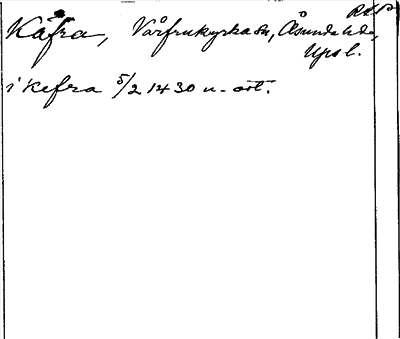 RAP
Käfra, Vårfrukyrka sn, Åsunda hd,
Uppl.
i Kefra 5/2 1430 u. ort.